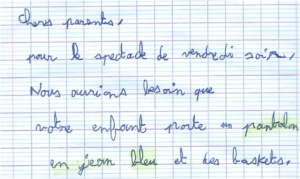 Chers parents,
pour le spectacle de vendredi soir,
Nous aurions besoin que
votre enfant porte un pantalon
en jean bleu et des baskets.